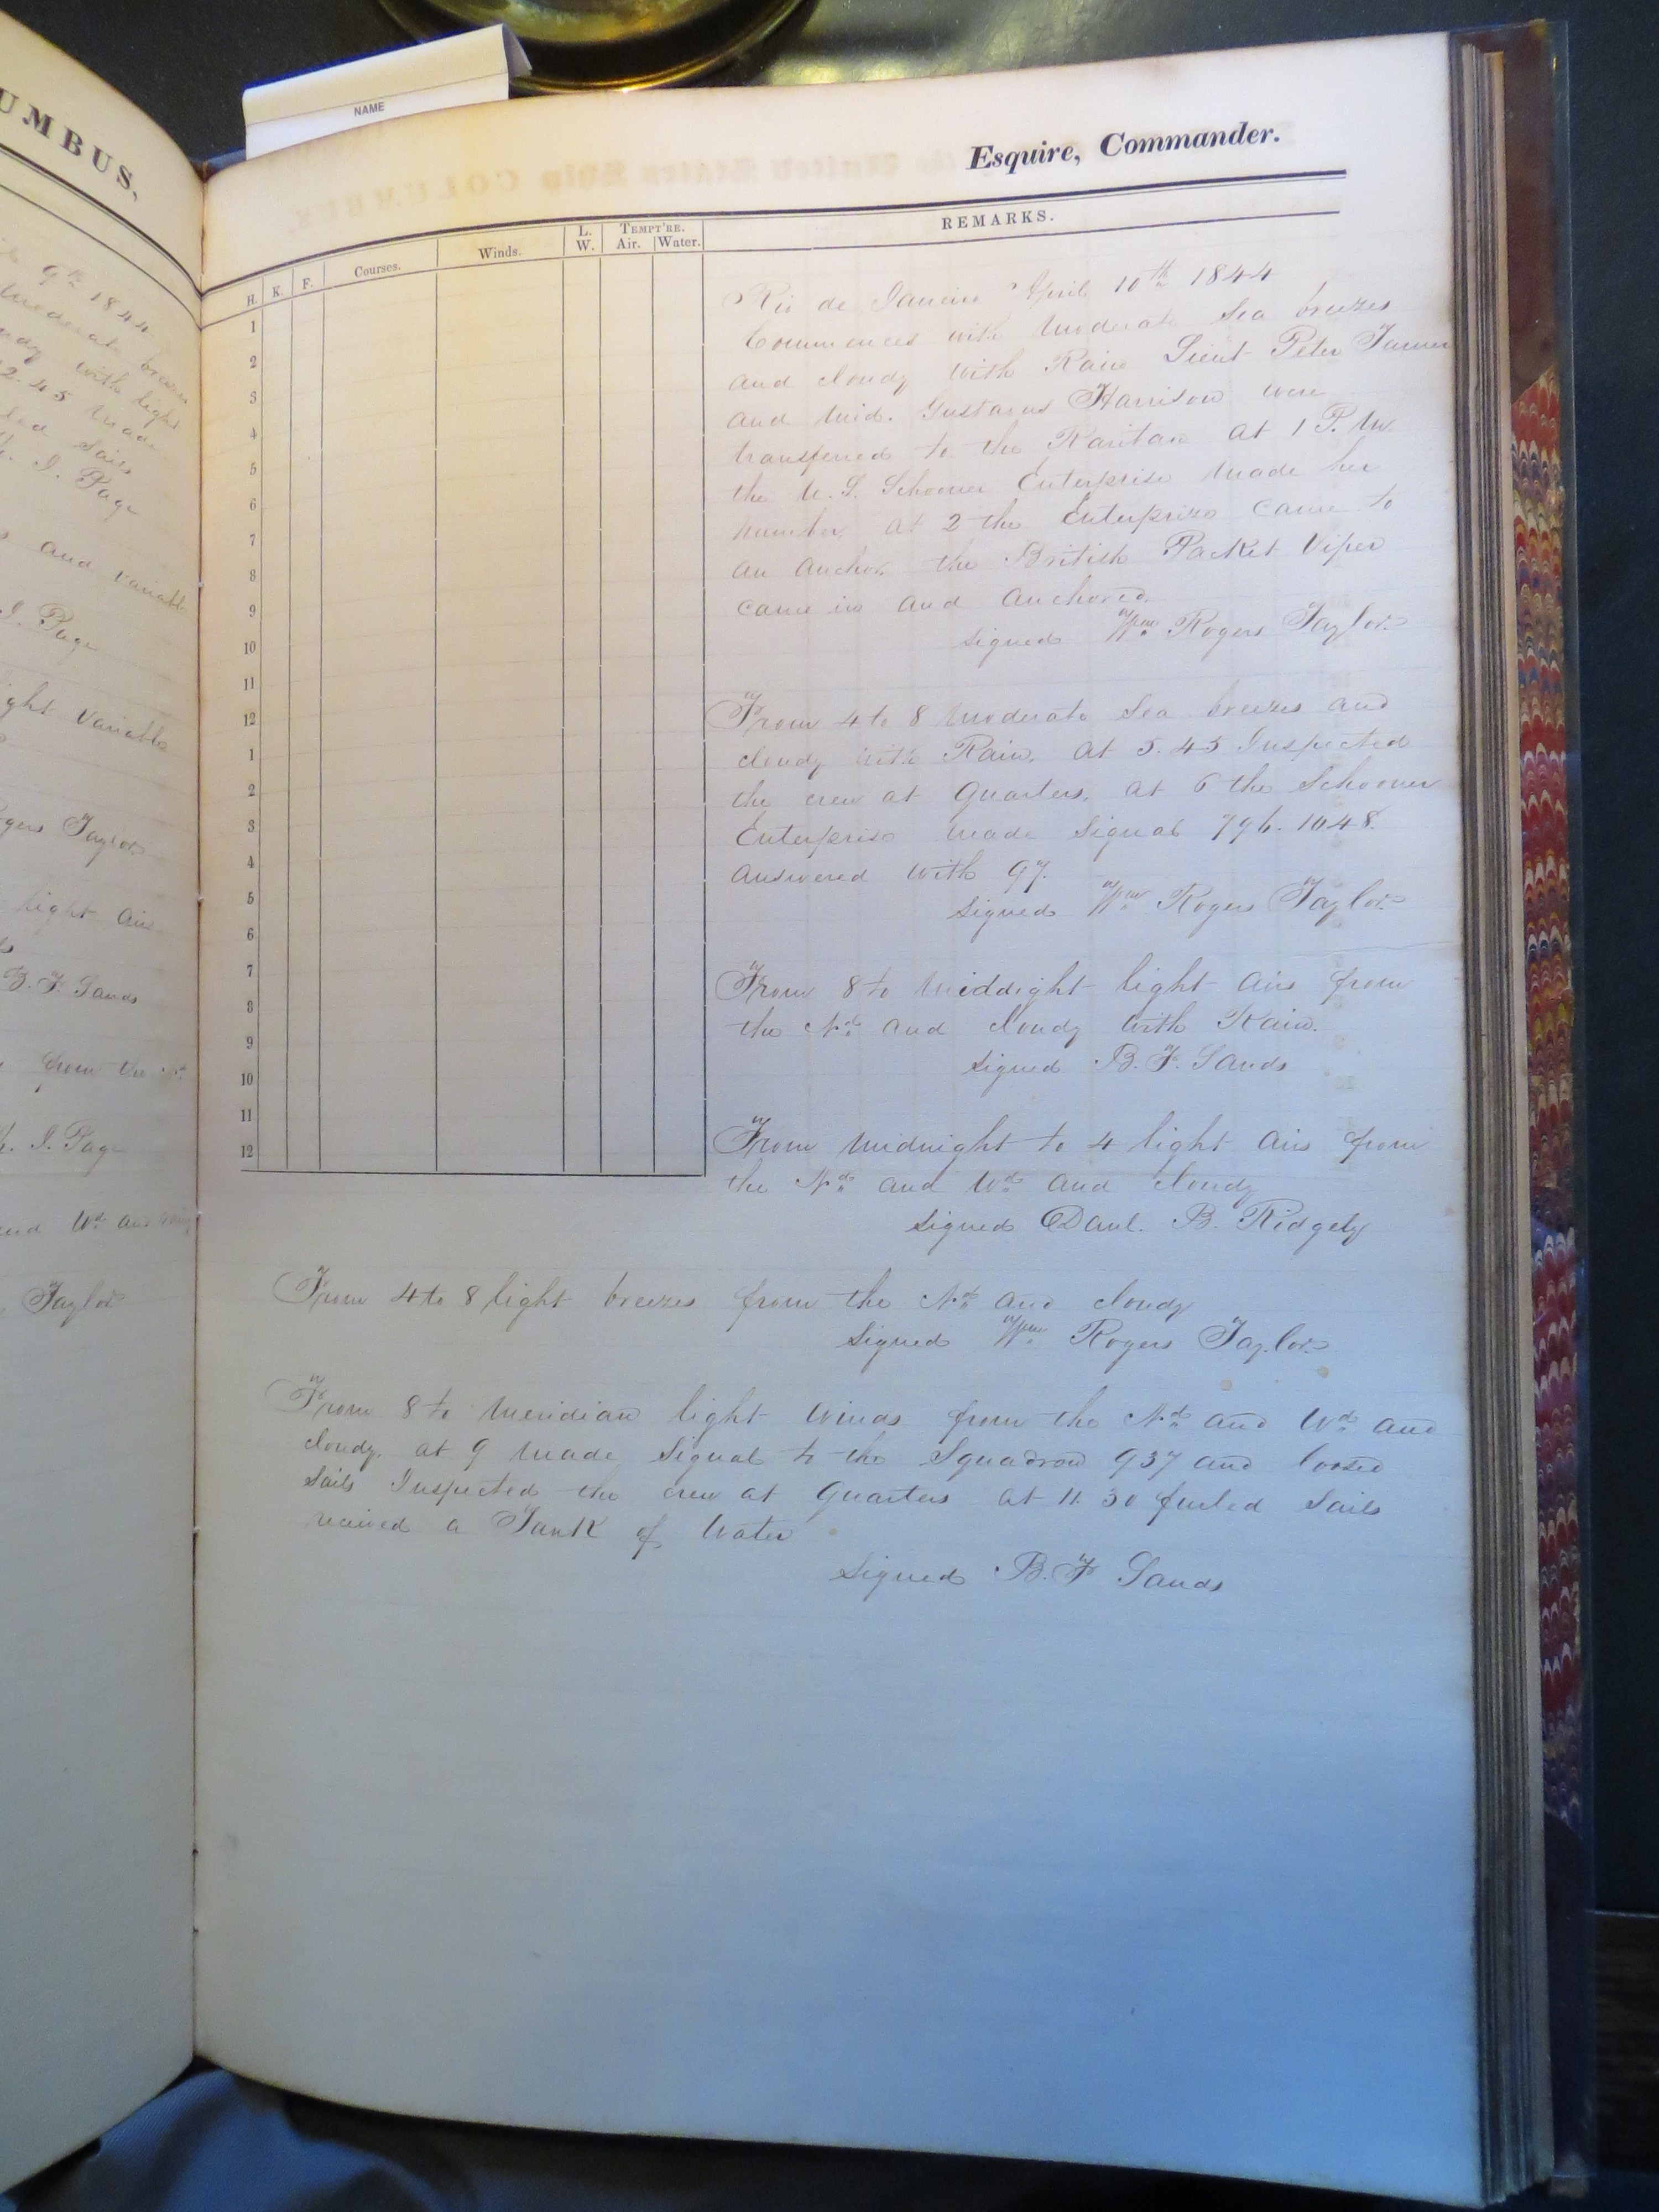 UMBUS,
9th 1844
moderate breezes
with light
2.45 made
Sails
J. Page
and variable
J. Page
light variable
Rogers Taylor
light airs
B. F. Sands
from the Nd
J. Page
and Wd and
Taylor
NAME
Esquire, Commander.
H. K. F. Courses. Winds. L. W. TEMPT'RE. Air. Water. REMARKS.
1
2
3
4
5
6
7
8
9
10
11
12
1
2
3
4
5
6
7
8
9
10
11
12
Rio de Janeiro April 10th 1844
Commences with moderate Sea breezes
and cloudy with Rain Lieut Peter Turner
and Mid. Gustavus Harrison were
transferred to the Raritan at 1 P.M.
the U.S. Schooner Enterprise made her
number. at 2 the Enterprize came to
an anchor. the British Packet Viper
came in and anchored.
Signed Wm Rogers Taylor.
From 4 to 8 moderate Sea breezes and
cloudy with Rain. at 5.45 Inspected
the crew at Quarters. at 6 the Schooner
Enterprise made Signal 796. 1048.
answered with 97.
Signed Wm Rogers Taylor.
From 8 to middight light airs from
the Nd and cloudy with Rain.
Signed B. F. Sands
From midnight to 4 light airs from
the Nd and Wd and cloudy
Signed Danl. B. Ridgely
From 4 to 8 light breezes from the Nd and cloudy
Signed Wm Rogers Taylor.
From 8 to Meridian light winds from the Nd and Wd and
cloudy. at 9 made Signal to the Squadron 937 and loosed
Sails Inspected the crew at Quarters at 11.30 furled Sails
received a Tank of Water
Signed B. F Sands